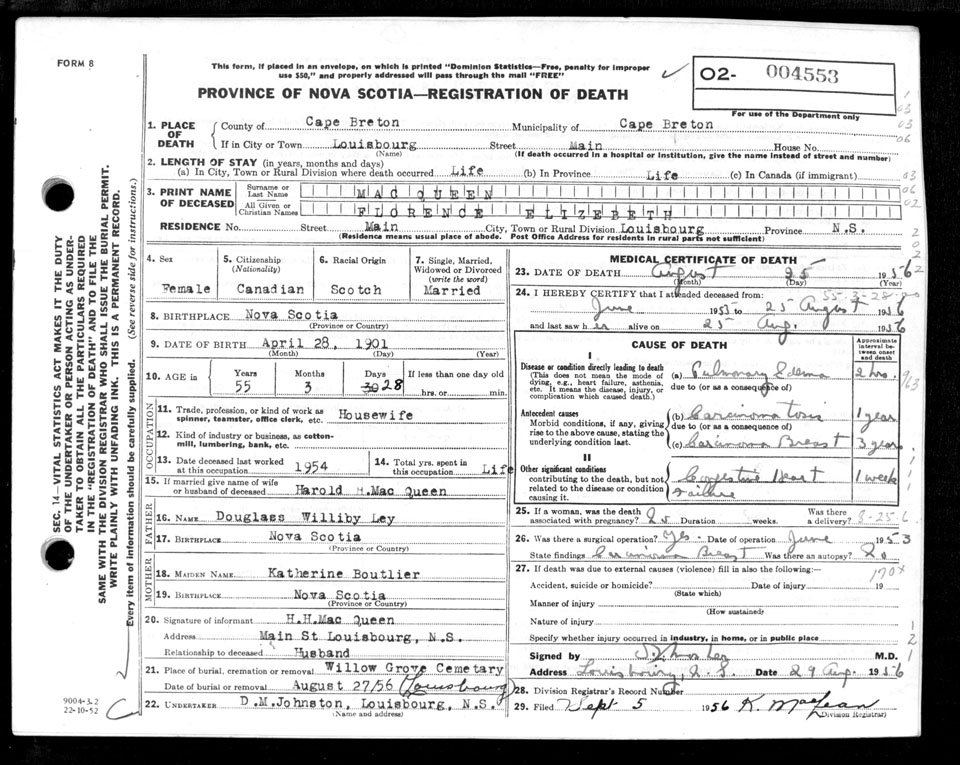 FORM 8
This form, if placed in an envelope, on which is printed "Dominion Statistics—Free, penalty for improper
use $50," and properly addressed will pass through the mail "FREE"
O2- 004553
For use of the Department only
PROVINCE OF NOVA SCOTIA—REGISTRATION OF DEATH
1. PLACE OF DEATH County of Cape Breton Municipality of Cape Breton
If in City or Town Louisbourg Street Main House No.
(Name) (If death occurred in a hospital or institution, give the name instead of street and number)
2. LENGTH OF STAY (in years, months and days)
(a) In City, Town or Rural Division where death occurred Life (b) In Province Life (c) In Canada (if immigrant)
3. PRINT NAME OF DECEASED Surname or Last Name MAC QUEEN
All Given or Christian Names FLORENCE ELIZEBETH
RESIDENCE No. Street Main City, Town or Rural Division Louisbourg Province N.S.
(Residence means usual place of abode. Post Office Address for residents in rural parts not sufficient)
4. Sex Female
5. Citizenship (Nationality) Canadian
6. Racial Origin Scotch
7. Single, Married, Widowed or Divorced (write the word) Married
8. BIRTHPLACE Nova Scotia
(Province or Country)
9. DATE OF BIRTH April 28, 1901
(Month) (Day) (Year)
10. AGE in Years Months Days If less than one day old
55 3 30 28 hrs. or min.
OCCUPATION
11. Trade, profession or kind of work as spinner, teamster, office clerk, etc. Housewife
12. Kind of industry or business, as cotton-mill, lumbering, bank, etc.
13. Date deceased last worked at this occupation 1954
14. Total yrs. spent in this occupation Life
15. If married give name of wife or husband of deceased Harold H.Mac Queen
FATHER
16. NAME Douglass Williby Ley
17. BIRTHPLACE Nova Scotia
(Province or Country)
MOTHER
18. MAIDEN NAME Katherine Boutlier
19. BIRTHPLACE Nova Scotia
(Province or Country)
20. Signature of informant H.H.Mac Queen
Address Main St Louisbourg, N.S.
Relationship to deceased Husband
21. Place of burial, cremation or removal Willow Grove Cemetary
Date of burial or removal August 27/56 (Louisbourg)
22. UNDERTAKER D.M.Johnston, Louisbourg, N.S.
(Name and address)
MEDICAL CERTIFICATE OF DEATH
23. DATE OF DEATH August 25 1956
(Month) (Day) (Year)
55-3-28
24. I HEREBY CERTIFY that I attended deceased from:
June 1953 to 25 August 1956
and last saw her alive on 25 Aug. 1956
CAUSE OF DEATH
Approximate interval between onset and death
I
Disease or condition directly leading to death
(This does not mean the mode of dying, e.g., heart failure, asthenia, etc. It means the disease, injury, or complication which caused death.)
(a) Pulmonary Edema 2 hrs.
due to (or as a consequence of)
Antecedent causes
Morbid conditions, if any, giving rise to the above cause, stating the underlying condition last.
(b) Carcinomatosis 1 year
due to (or as a consequence of)
(c) Carcinoma Breast 3 years
II
Other significant conditions
contributing to the death, but not related to the disease or condition causing it.
Congestive Heart Failure 1 week
25. If a woman, was the death associated with pregnancy? No Duration weeks. Was there a delivery? 8-25-6
26. Was there a surgical operation? Yes. Date of operation June 1953
State findings Carcinoma Breast Was there an autopsy? No
27. If death was due to external causes (violence) fill in also the following:— 170x
Accident, suicide or homicide? Date of injury 19
(State which)
Manner of injury
(How sustained)
Nature of injury
Specify whether injury occurred in industry, in home, or in public place
Signed by M.D.
Address Louisbourg, N.S. Date 29 Aug. 1956
28. Division Registrar's Record Number
29. Filed Sept 5 1956 K. MacLean
(Division Registrar)
SEC. 14—VITAL STATISTICS ACT MAKES IT THE DUTY
OF THE UNDERTAKER OR PERSON ACTING AS UNDER-
TAKER TO OBTAIN ALL THE PARTICULARS REQUIRED
IN THE "REGISTRATION OF DEATH" AND TO FILE THE
SAME WITH THE DIVISION REGISTRAR WHO SHALL ISSUE THE BURIAL PERMIT.
WRITE PLAINLY WITH UNFADING INK. THIS IS A PERMANENT RECORD.
Every item of information should be carefully supplied. (See reverse side for instructions.)
9004-3.2
22-10-52